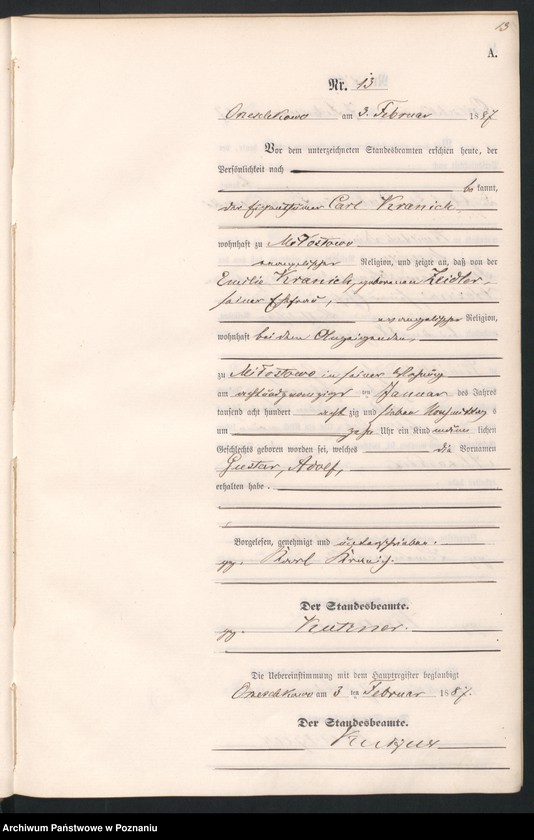 13
A.
Nr. 13
Orzeschkowo am 3. Februar 1887
Vor dem unterzeichneten Standesbeamten erschien heute, der
Persönlichkeit nach
be kannt,
der Eigenthümer Carl Kranich
wohnhaft zu Miłostowo
evangelischer Religion, und zeigte an, daß von der
Emilie Kranich, geborenen Zeidler,
seiner Ehefrau,
evangelischer Religion,
wohnhaft bei dem Anzeigenden,
zu Miłostowo in seiner Wohnung
am achtundzwanzigsten Januar des Jahres
tausend acht hundert acht zig und sieben Nachmittag s
um zehn Uhr ein Kind männ lichen
Geschlechts geboren worden sei, welches die Vornamen
Gustav, Adolf,
erhalten habe.
Vorgelesen, genehmigt und unterschrieben.
gez. Karl Kranich.
Der Standesbeamte.
gez.
Die Uebereinstimmung mit dem Hauptregister beglaubigt
Orzeschkowo am 3 ten Februar 1887.
Der Standesbeamte.
Archiwum Państwowe w Poznaniu